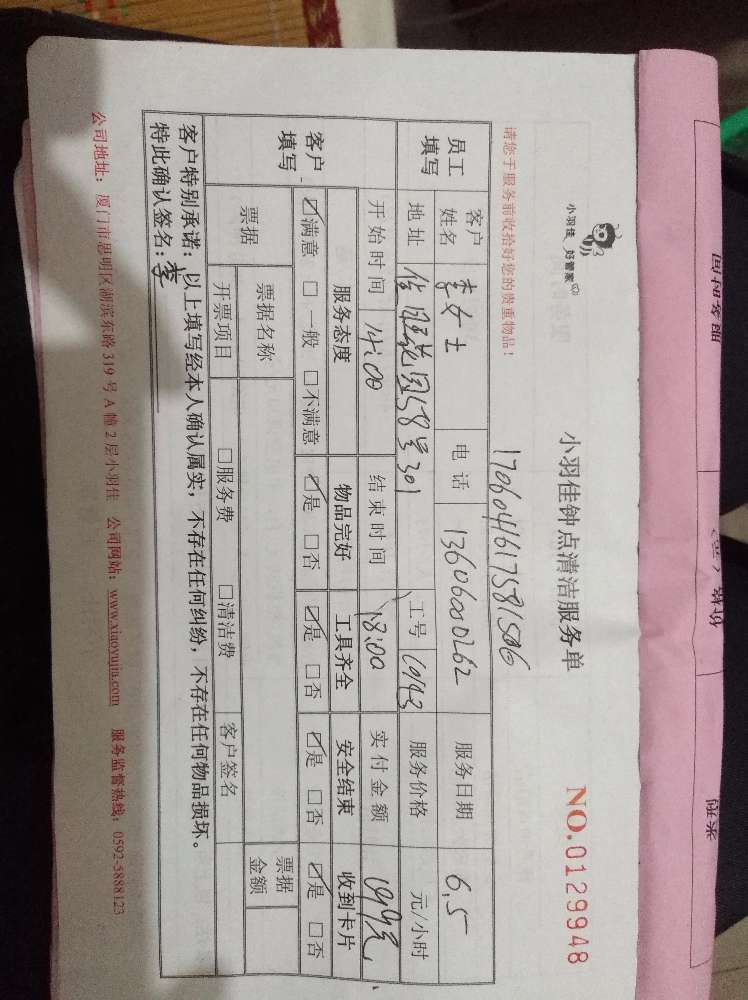 小羽佳 好管家
小羽佳钟点清洁服务单
NO.0129948
请您于服务前收拾好您的贵重物品！
员工填写
客户姓名 李女士 电话 13606000262 服务日期 6.5
地址 58号301 工号 服务价格 元/小时
开始时间 14:00 结束时间 18:00 实付金额 199元
客户填写
服务态度 物品完好 工具齐全 安全结束 收到卡片
☑满意 □一般 □不满意 ☑是 □否 ☑是 □否 ☑是 □否 ☑是 □否
票据 票据名称 票据金额
开票项目 □服务费 □清洁费 客户签名
客户特别承诺：以上填写经本人确认属实，不存在任何纠纷，不存在任何物品损坏。
特此确认签名：李
公司地址：厦门市思明区湖滨东路 319 号 A 幢 2 层小羽佳 公司网站：www.xiaoyujia.com 服务监督热线：0592-5888123